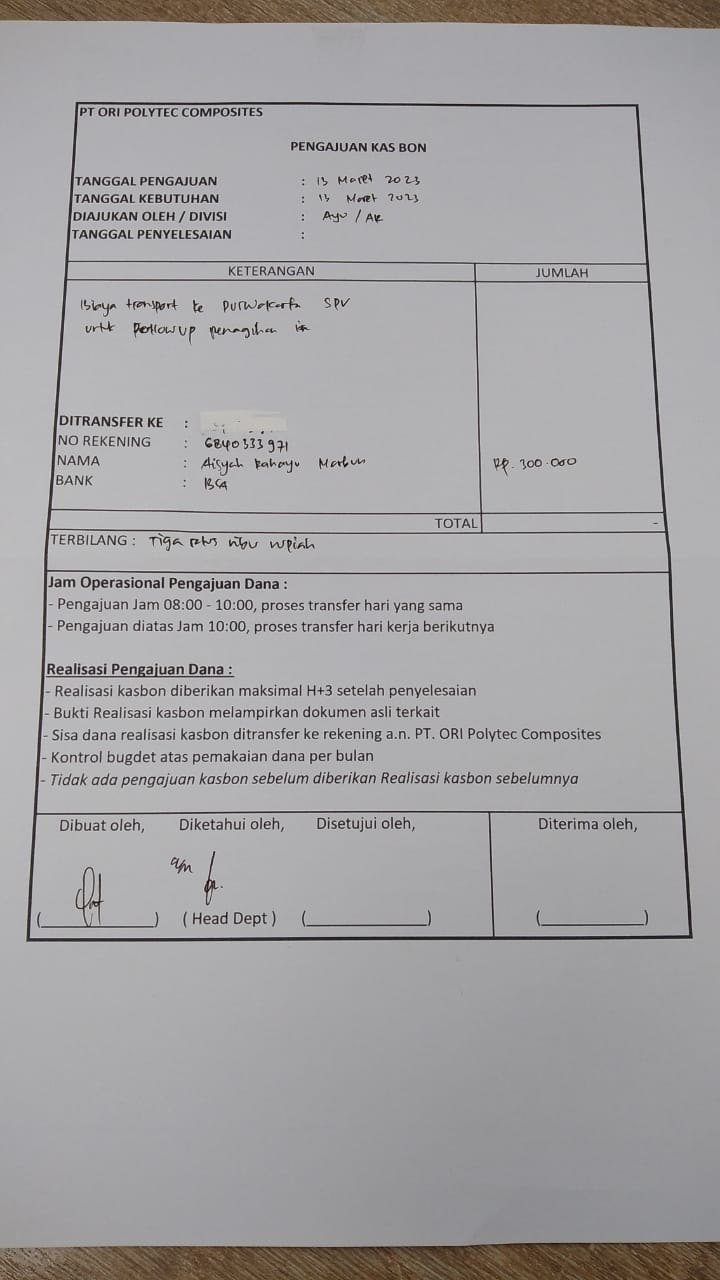 PT ORI POLYTEC COMPOSITES
PENGAJUAN KAS BON
TANGGAL PENGAJUAN : 13 Maret 2023
TANGGAL KEBUTUHAN : 13 Maret 2023
DIAJUKAN OLEH / DIVISI : Ayu / AR
TANGGAL PENYELESAIAN :
KETERANGAN JUMLAH
Biaya transport ke Purwakarta SPV
untk followup penagihan
DITRANSFER KE :
NO REKENING : 6840333971
NAMA : Aisyah Rahayu Marbun Rp. 300.000
BANK : BCA
TOTAL -
TERBILANG : Tiga ratus ribu rupiah
Jam Operasional Pengajuan Dana :
- Pengajuan Jam 08:00 - 10:00, proses transfer hari yang sama
- Pengajuan diatas Jam 10:00, proses transfer hari kerja berikutnya
Realisasi Pengajuan Dana :
- Realisasi kasbon diberikan maksimal H+3 setelah penyelesaian
- Bukti Realisasi kasbon melampirkan dokumen asli terkait
- Sisa dana realisasi kasbon ditransfer ke rekening a.n. PT. ORI Polytec Composites
- Kontrol bugdet atas pemakaian dana per bulan
- Tidak ada pengajuan kasbon sebelum diberikan Realisasi kasbon sebelumnya
Dibuat oleh, Diketahui oleh, Disetujui oleh, Diterima oleh,
a/n
(__________) ( Head Dept ) (__________) (__________)